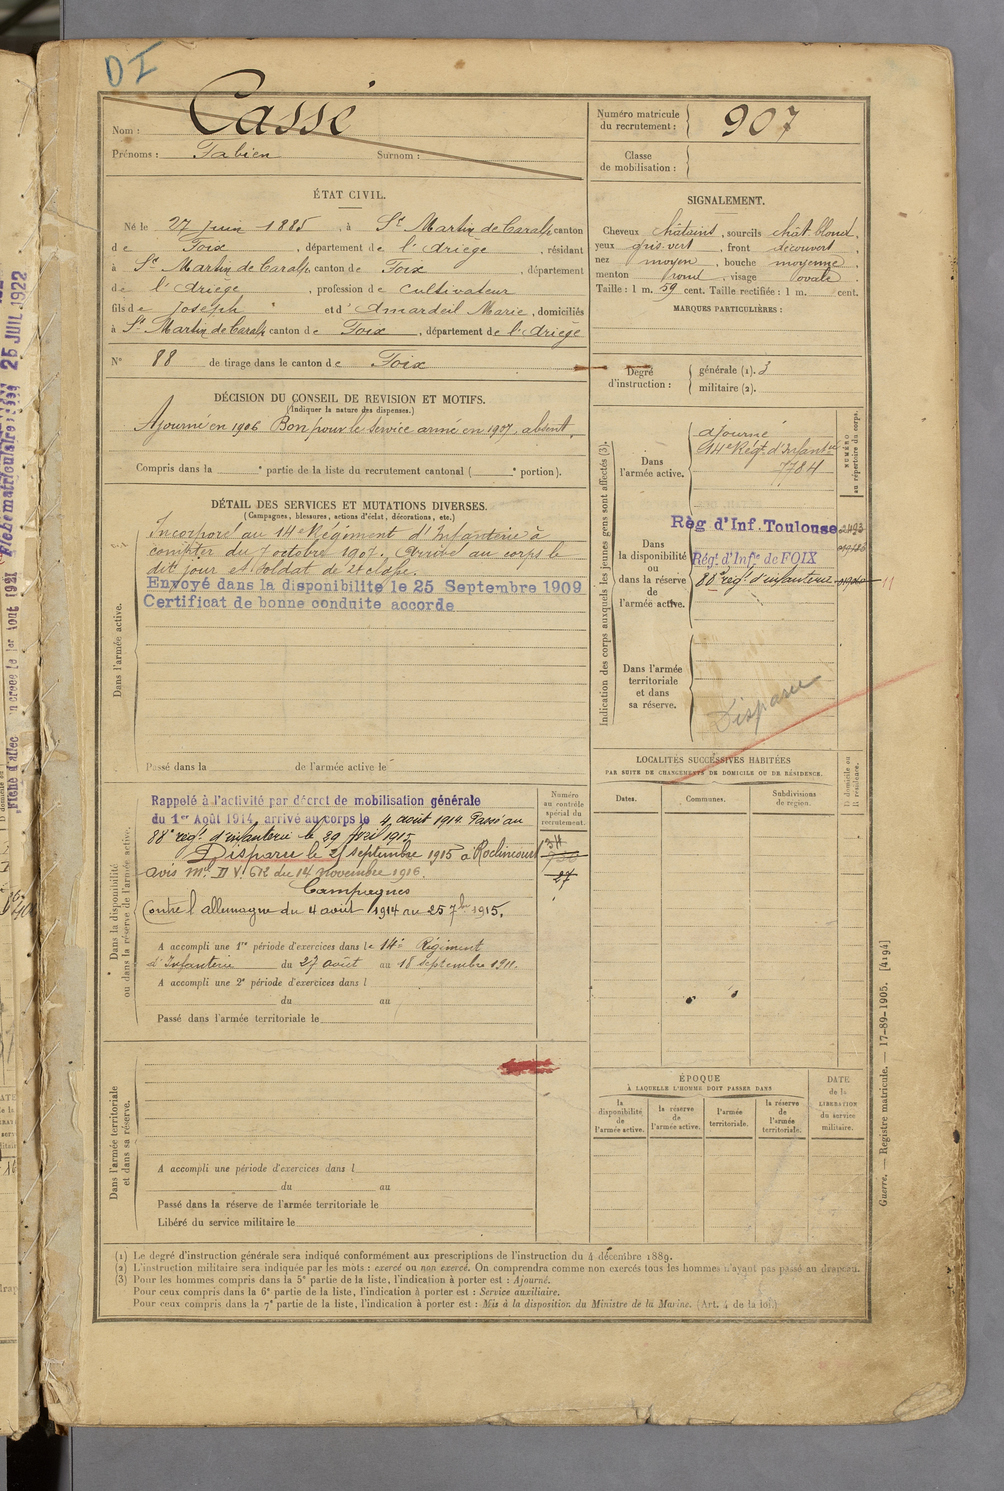 DI
Nom : Cassé
Prénoms : Fabien Surnom :
Numéro matricule du recrutement : 907
Classe de mobilisation :
ÉTAT CIVIL.
Né le 27 Juin 1885, à St Martin de Caralp, canton
de Foix, département de l'Ariège, résidant
à St Martin de Caralp, canton de Foix, département
de l'Ariège, profession de cultivateur
fils de Joseph et d'Amardeil Marie, domiciliés
à St Martin de Caralp canton de Foix, département de l'Ariège
N° 88 de tirage dans le canton de Foix
SIGNALEMENT.
Cheveux châtains, sourcils chât. blond,
yeux gris-vert, front découvert,
nez moyen, bouche moyenne,
menton rond, visage ovale.
Taille : 1 m. 59 cent. Taille rectifiée : 1 m. cent.
MARQUES PARTICULIÈRES :
Degré d'instruction : générale (1). 3
militaire (2).
DÉCISION DU CONSEIL DE REVISION ET MOTIFS.
(Indiquer la nature des dispenses.)
Ajourné en 1906 Bon pour le service armé en 1907, absent.
Compris dans la e partie de la liste du recrutement cantonal ( e portion).
DÉTAIL DES SERVICES ET MUTATIONS DIVERSES.
(Campagnes, blessures, actions d'éclat, décorations, etc.)
Dans l'armée active.
Incorporé au 14e Régiment d'Infanterie à
compter du 7 octobre 1907. Arrivé au corps le
dit jour et soldat de 2e classe.
Envoyé dans la disponibilité le 25 Septembre 1909
Certificat de bonne conduite accorde
Passé dans la de l'armée active le
Indication des corps auxquels les jeunes gens sont affectés (3).
NUMÉRO au répertoire du corps.
Dans l'armée active.
ajourné
14e Régt d'Infantrie
7784
Dans la disponibilité ou dans la réserve de l'armée active.
Règ d'Inf. Toulouse
Rég. d'Inf. de FOIX
88e rég. d'infanterie
Dans l'armée territoriale et dans sa réserve.
Disparu
Dans la disponibilité ou dans la réserve de l'armée active.
Rappelé à l'activité par décret de mobilisation générale
du 1er Août 1914, arrivé au corps le 4 août 1914. Passé au
88e rég. d'infanterie le 29 avril 1915
Disparu le 25 septembre 1915 à Roclincourt
avis ml D V. 612 du 14 novembre 1916.
Campagnes
Contre l'allemagne du 4 août 1914 au 25 7bre 1915.
A accompli une 1re période d'exercices dans le 14e Régiment
d'Infanterie du 27 août au 18 septembre 1911.
A accompli une 2e période d'exercices dans l
du au
Passé dans l'armée territoriale le
Numéro au contrôle spécial du recrutement.
27
LOCALITÉS SUCCESSIVES HABITÉES
PAR SUITE DE CHANGEMENTS DE DOMICILE OU DE RÉSIDENCE.
Dates. Communes. Subdivisions de region. D domicile ou R résidence.
Dans l'armée territoriale et dans sa réserve.
A accompli une période d'exercices dans l
du au
Passé dans la réserve de l'armée territoriale le
Libéré du service militaire le
ÉPOQUE
À LAQUELLE L'HOMME DOIT PASSER DANS
la disponibilité de l'armée active.
la réserve de l'armée active.
l'armée territoriale.
la réserve de l'armée territoriale.
DATE de la LIBÉRATION du service militaire.
(1) Le degré d'instruction générale sera indiqué conformément aux prescriptions de l'instruction du 4 décembre 1889.
(2) L'instruction militaire sera indiquée par les mots : exercé ou non exercé. On comprendra comme non exercés tous les hommes n'ayant pas passé au drapeau.
(3) Pour les hommes compris dans la 5e partie de la liste, l'indication à porter est : Ajourné.
Pour ceux compris dans la 6e partie de la liste, l'indication à porter est : Service auxiliaire.
Pour ceux compris dans la 7e partie de la liste, l'indication à porter est : Mis à la disposition du Ministre de la Marine. (Art. 4 de la loi.)
Guerre. — Registre matricule. — 17-89-1905. [4194]
25 JUIL. 1922